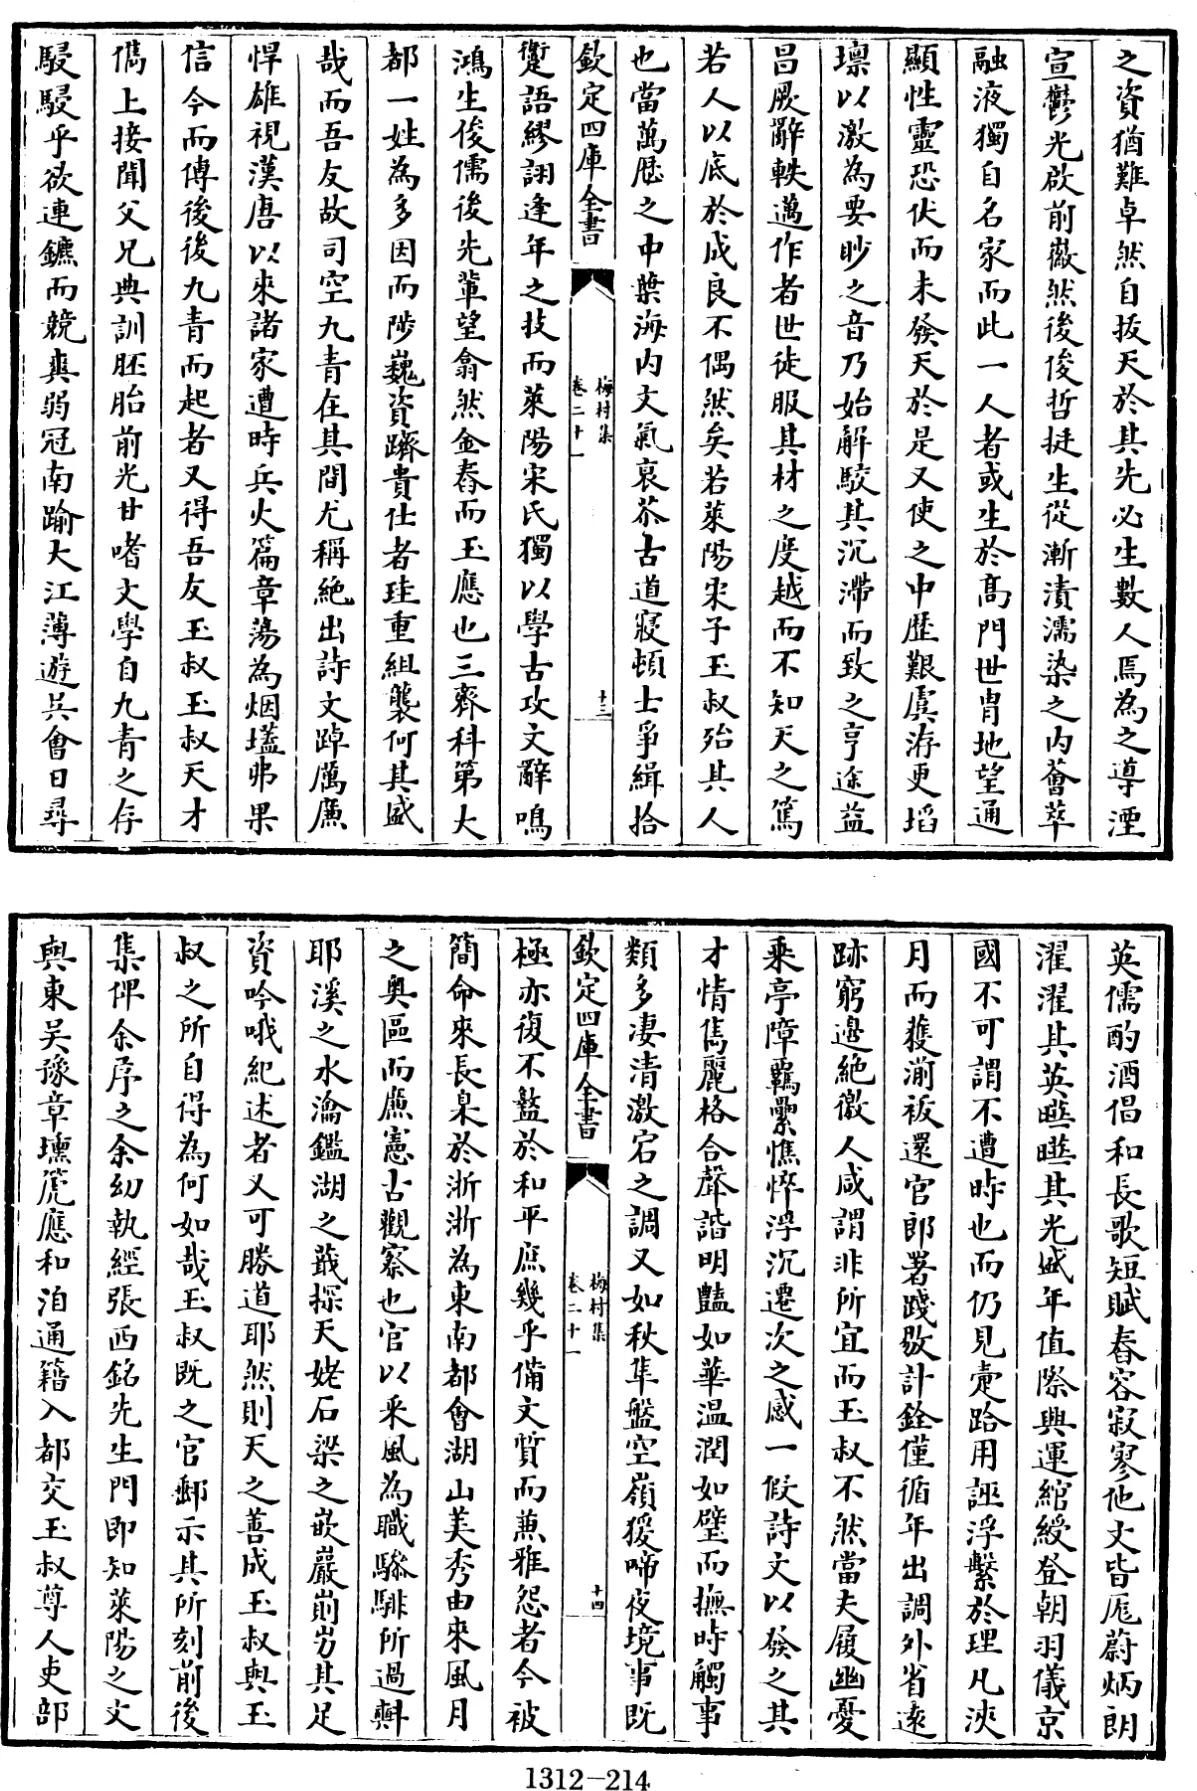 之資猶難卓然自拔天於其先必生數人焉為之導湮
宣鬱光啟前徽然後俊哲挺生從漸漬濡染之内薈萃
融液獨自名家而此一人者或生於髙門世胄地望通
顯性靈恐伏而未發天於是又使之中歴艱虞洊更埳
壈以激為要眇之音乃始解駮其沉滯而致之亨途益
昌厥辭軼邁作者世徒服其材之度越而不知天之篤
若人以底於成良不偶然矣若萊陽宋子玉叔殆其人
也當萬厯之中葉海内文氣衰苶古道寢頓士爭緝拾
欽定四庫全書
梅村集
卷二十一
十三
躗語繆詡逢年之技而萊陽宋氏獨以學古攻文辭鳴
鴻生俊儒後先軰望翕然金舂而玉應也三齊科第大
都一姓為多因而陟巍資躋貴仕者珪重組襲何其盛
哉而吾友故司空九青在其間尤稱絶出詩文踔厲廉
悍雄視漢唐以來諸家遭時兵火篇章蕩為烟壒弗果
信今而傳後後九青而起者又得吾友玉叔玉叔天才
儁上接聞父兄典訓胚胎前光甘嗜文學自九青之存
駸駸乎欲連鑣而競爽弱冠南踰大江薄遊吳會日尋
英儒酌酒倡和長歌短賦舂容寂寥他文皆厖蔚炳朗
濯濯其英曄曄其光盛年值際興運綰綬登朝羽儀京
國不可謂不遭時也而仍見疐跲用誣浮繫於理凡浹
月而獲湔祓還官郎署踐敭計銓僅循年出調外省逺
跡窮邉絶徼人咸謂非所宜而玉叔不然當夫履幽憂
乘亭障羈纍憔悴浮沉遷次之感一假詩文以發之其
才情雋麗格合聲諧明豔如華温潤如璧而撫時觸事
類多凄清激宕之調又如秋隼盤空嶺猨啼夜境事既
欽定四庫全書
梅村集
卷二十一
十四
極亦復不盭於和平庶幾乎備文質而兼雅怨者今被
簡命來長臬於浙浙為東南都會湖山美秀由來風月
之奥區而廉憲古觀察也官以采風為職驂騑所過㪺
耶溪之水瀹鑑湖之蕺探天姥石梁之嵌巖崱屴其足
資吟哦紀述者又可勝道耶然則天之善成玉叔與玉
叔之所自得為何如哉玉叔既之官郵示其所刻前後
集俾余序之余幼執經張西銘先生門即知萊陽之文
與東吴豫章壎箎應和洎通籍入都交玉叔尊人吏部
1312-214